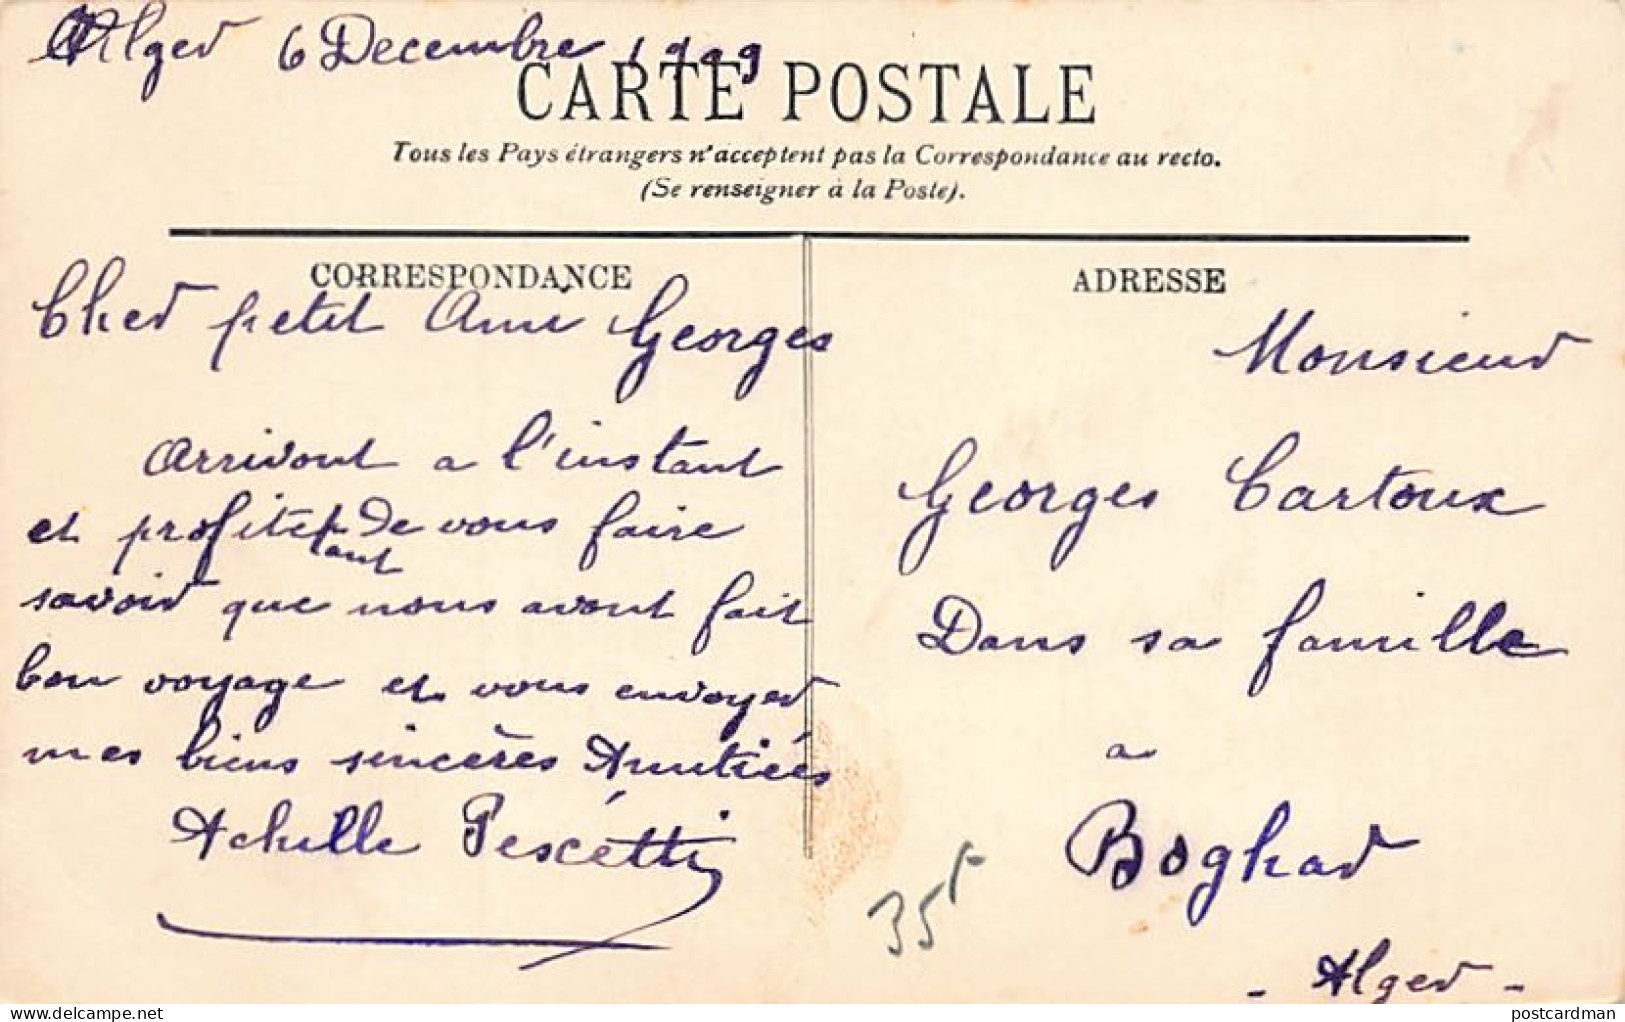 Alger 6 Decembre 1909
CARTE POSTALE
Tous les Pays étrangers n'acceptent pas la Correspondance au recto.
(Se renseigner à la Poste).
CORRESPONDANCE
Cher petit Ami Georges
Arrivont a l'instant
et profitet de vous faire
tant
savoir que nous avont fait
bon voyage et vous envoyer
mes biens sincères Amitiées
Achille Pescétti
ADRESSE
Monsieur
Georges Cartoux
Dans sa famille
a
Boghar
- Alger -
35f
postcardman